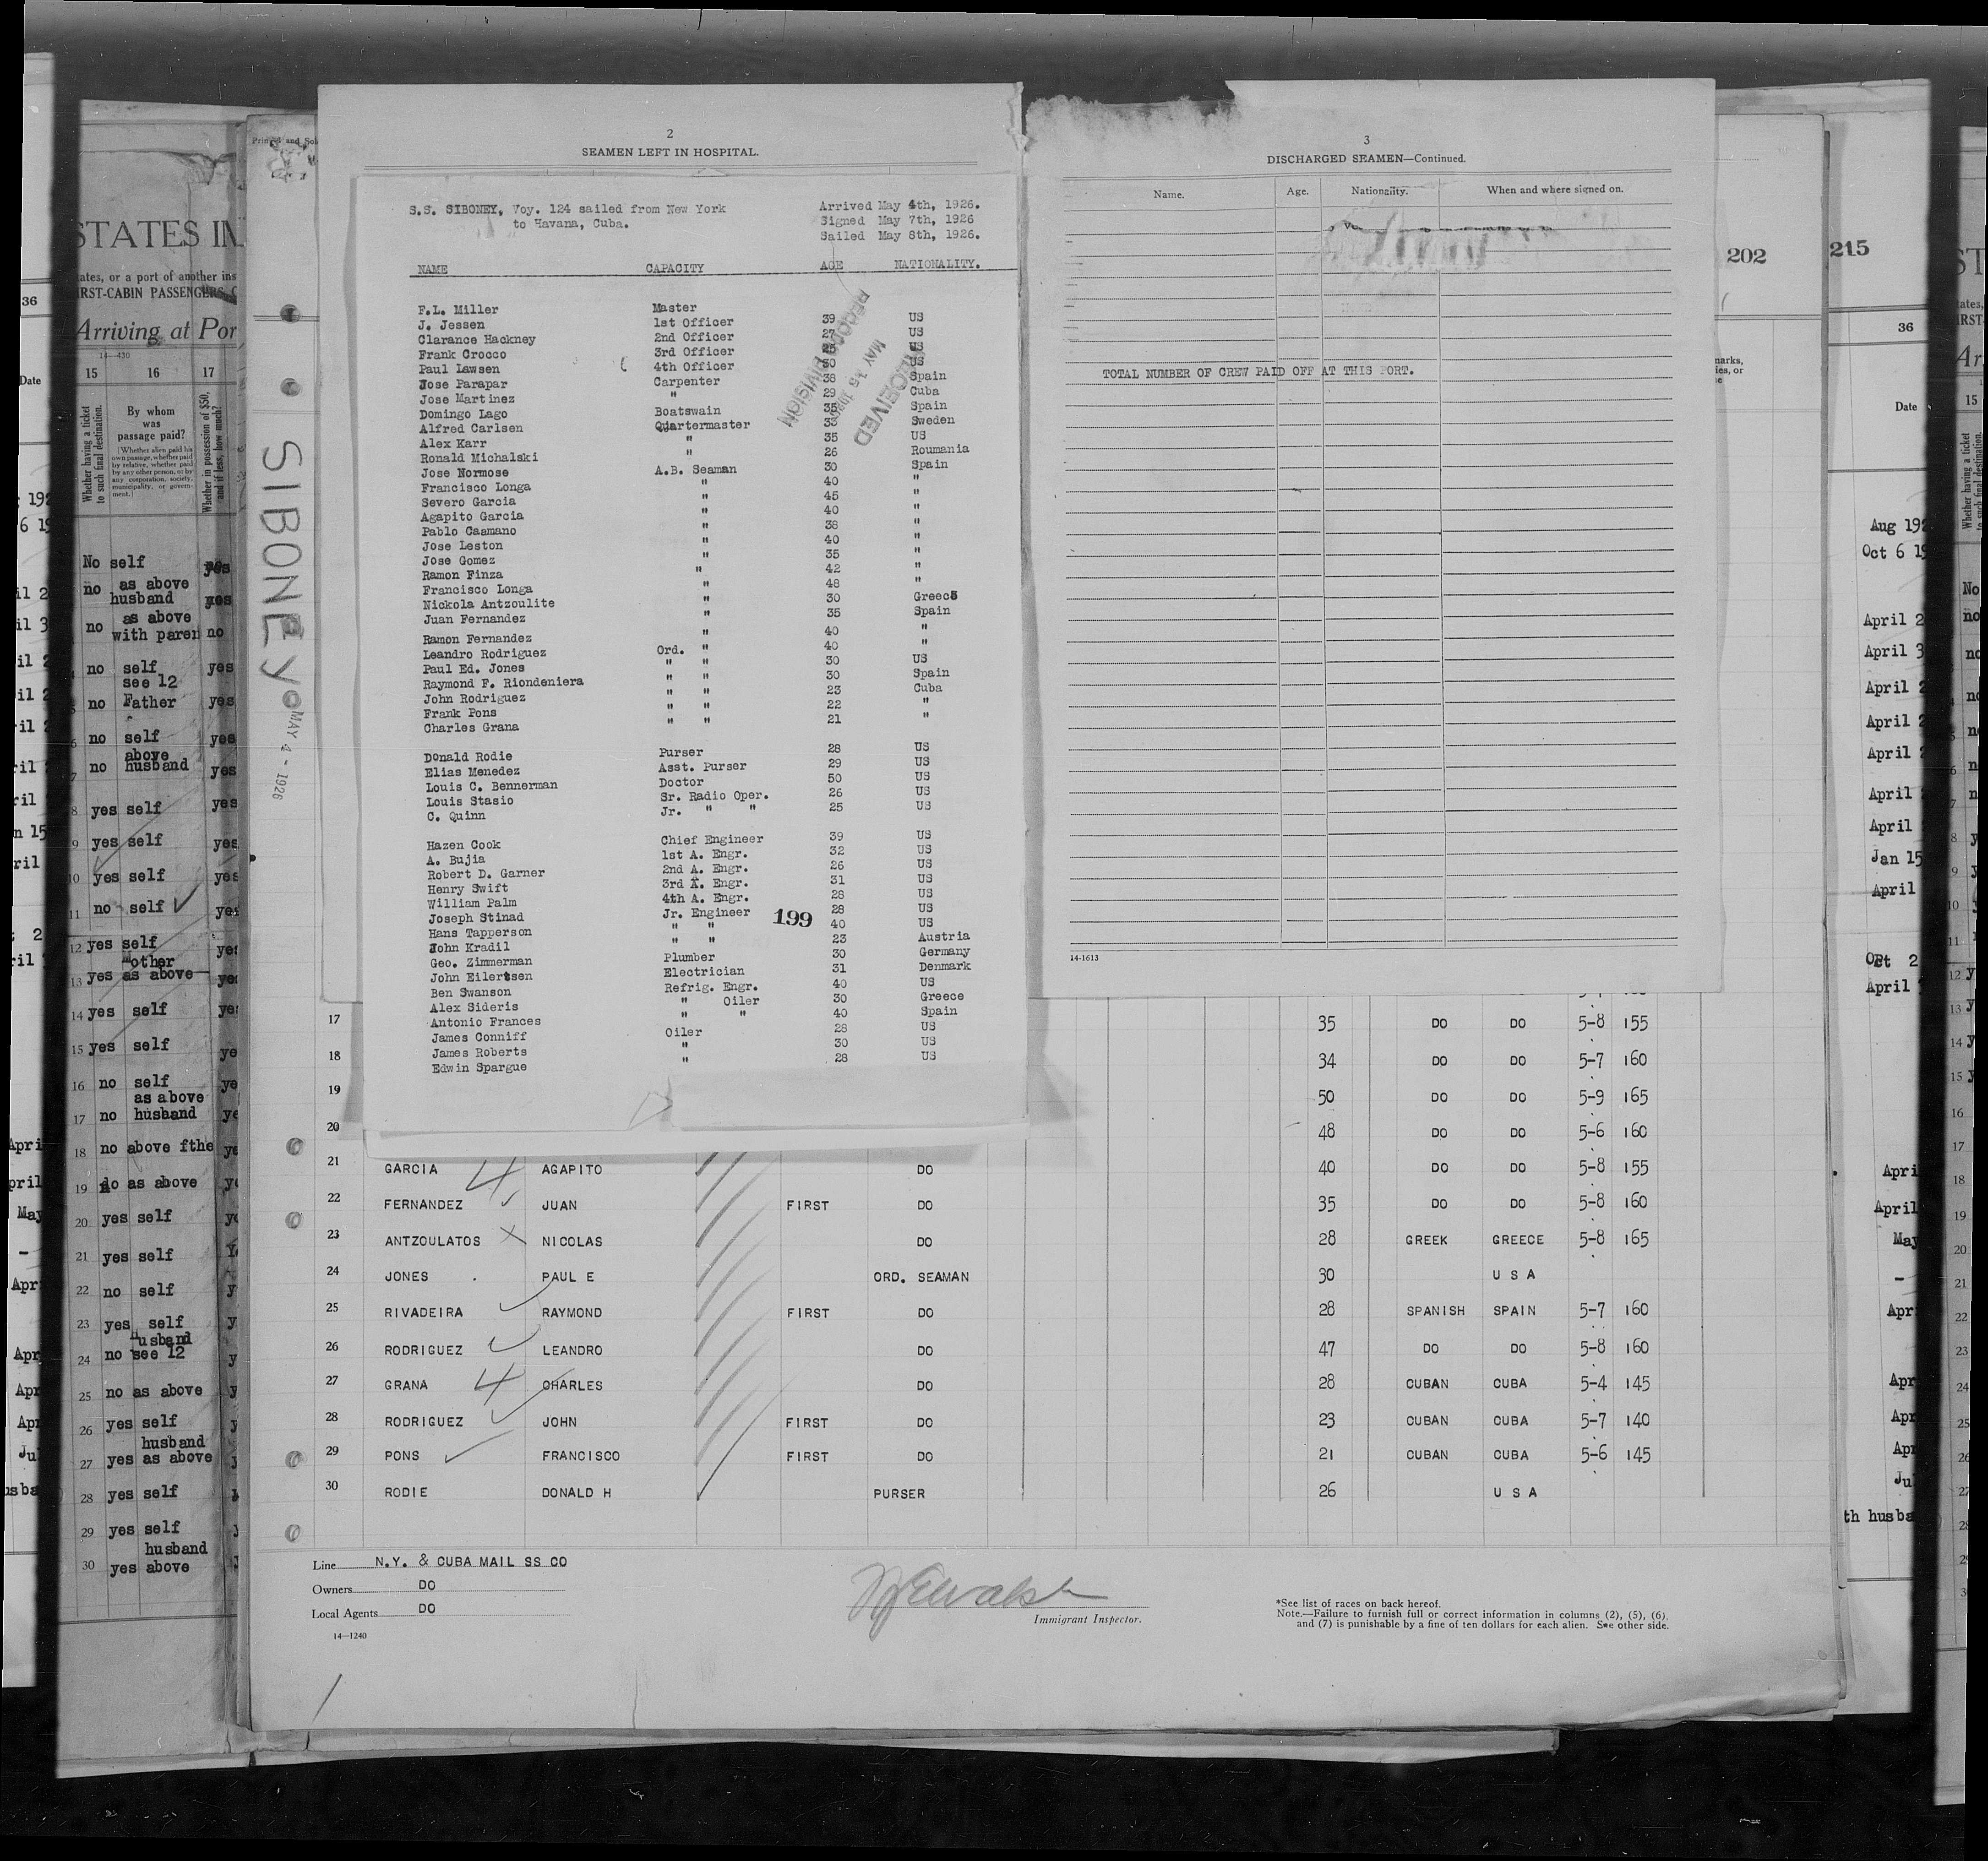 2
SEAMEN LEFT IN HOSPITAL.
S.S. SIBONEY, Voy. 124 sailed from New York Arrived May 4th, 1926.
to Havana, Cuba. Signed May 7th, 1926
Sailed May 8th, 1926.
NAME CAPACITY AGE NATIONALITY.
F.L. Miller Master
J. Jessen 1st Officer 39 US
Clarance Hackney 2nd Officer 27 US
Frank Crocco 3rd Officer US
Paul Lawsen 4th Officer 30 US
Jose Parapar Carpenter 38 Spain
Jose Martinez " 29 Cuba
Domingo Lago Boatswain 35 Spain
Alfred Carlsen Quartermaster 33 Sweden
Alex Karr " 35 US
Ronald Michalski " 26 Roumania
Jose Normose A.B. Seaman 30 Spain
Francisco Longa " 40 "
Severo Garcia " 45 "
Agapito Garcia " 40 "
Pablo Caamano " 38 "
Jose Leston " 40 "
Jose Gomez " 35 "
Ramon Finza " 42 "
Francisco Longa " 48 "
Nickola Antzoulite " 30 Greece
Juan Fernandez " 35 Spain
Ramon Fernandez " 40 "
Leandro Rodriguez Ord. " 40 "
Paul Ed. Jones " " 30 US
Raymond F. Riondeniera " " 30 Spain
John Rodriguez " " 23 Cuba
Frank Pons " " 22 "
Charles Grana " " 21 "
Donald Rodie Purser 28 US
Elias Menedez Asst. Purser 29 US
Louis C. Bennerman Doctor 50 US
Louis Stasio Sr. Radio Oper. 26 US
C. Quinn Jr. " " 25 US
Hazen Cook Chief Engineer 39 US
A. Bujia 1st A. Engr. 32 US
Robert D. Garner 2nd A. Engr. 26 US
Henry Swift 3rd A. Engr. 31 US
William Palm 4th A. Engr. 28 US
Joseph Stinad Jr. Engineer 28 US
199
Hans Tapperson " " 40 US
John Kradil " " 23 Austria
Geo. Zimmerman Plumber 30 Germany
John Eilertsen Electrician 31 Denmark
Ben Swanson Refrig. Engr. 40 US
Alex Sideris " Oiler 30 Greece
Antonio Frances " " 40 Spain
James Conniff Oiler 28 US
James Roberts " 30 US
Edwin Spargue " 28 US
RECORD DIVISION
MAY 15
RECEIVED
3
DISCHARGED SEAMEN—Continued.
Name. Age. Nationality. When and where signed on.
TOTAL NUMBER OF CREW PAID OFF AT THIS PORT.
14-1613
202
215
SIBONEY
MAY 4 - 1926
17 35 DO DO 5-8 155
18 34 DO DO 5-7 160
19 50 DO DO 5-9 165
20 48 DO DO 5-6 160
21 GARCIA AGAPITO DO 40 DO DO 5-8 155
22 FERNANDEZ JUAN FIRST DO 35 DO DO 5-8 160
23 ANTZOULATOS NICOLAS DO 28 GREEK GREECE 5-8 165
24 JONES PAUL E ORD. SEAMAN 30 U S A
25 RIVADEIRA RAYMOND FIRST DO 28 SPANISH SPAIN 5-7 160
26 RODRIGUEZ LEANDRO DO 47 DO DO 5-8 160
27 GRANA CHARLES DO 28 CUBAN CUBA 5-4 145
28 RODRIGUEZ JOHN FIRST DO 23 CUBAN CUBA 5-7 140
29 PONS FRANCISCO FIRST DO 21 CUBAN CUBA 5-6 145
30 RODIE DONALD H PURSER 26 U S A
Line N.Y. & CUBA MAIL SS CO
Owners DO
Local Agents DO
14—1240
Immigrant Inspector.
*See list of races on back hereof.
Note.—Failure to furnish full or correct information in columns (2), (5), (6),
and (7) is punishable by a fine of ten dollars for each alien. See other side.
STATES IN
tates, or a port of another ins
IRST-CABIN PASSENGERS
Arriving at Por
14—430
15 16 17
Whether having a ticket to such final destination.
By whom was passage paid?
(Whether alien paid his own passage, whether paid by relative, whether paid by any other person, or by any corporation, society, municipality, or government.)
Whether in possession of $50, and if less, how much?
No self yes
no as above
husband yes
no as above
with paren no
no self yes
see 12
no Father yes
no self yes
above
7 no husband yes
8 yes self yes
9 yes self yes
10 yes self yes
11 no self yes
12 yes self
Mother
13 yes as above
14 yes self
15 yes self
16 no self
as above
17 no husband
18 no above fthe
19 no as above
20 yes self
21 yes self
22 no self
23 yes self
Husband
24 no see 12
25 no as above
26 yes self
husband
27 yes as above
28 yes self
29 yes self
husband
30 yes above
36
Date
Aug 192
Oct 6 19
April 2
April 3
April 2
April 2
April 2
April
April
Jan 15
April
2
April
Apri
April
May
-
Apr
Apr
Apr
Apr
Apr
Jul
th husba